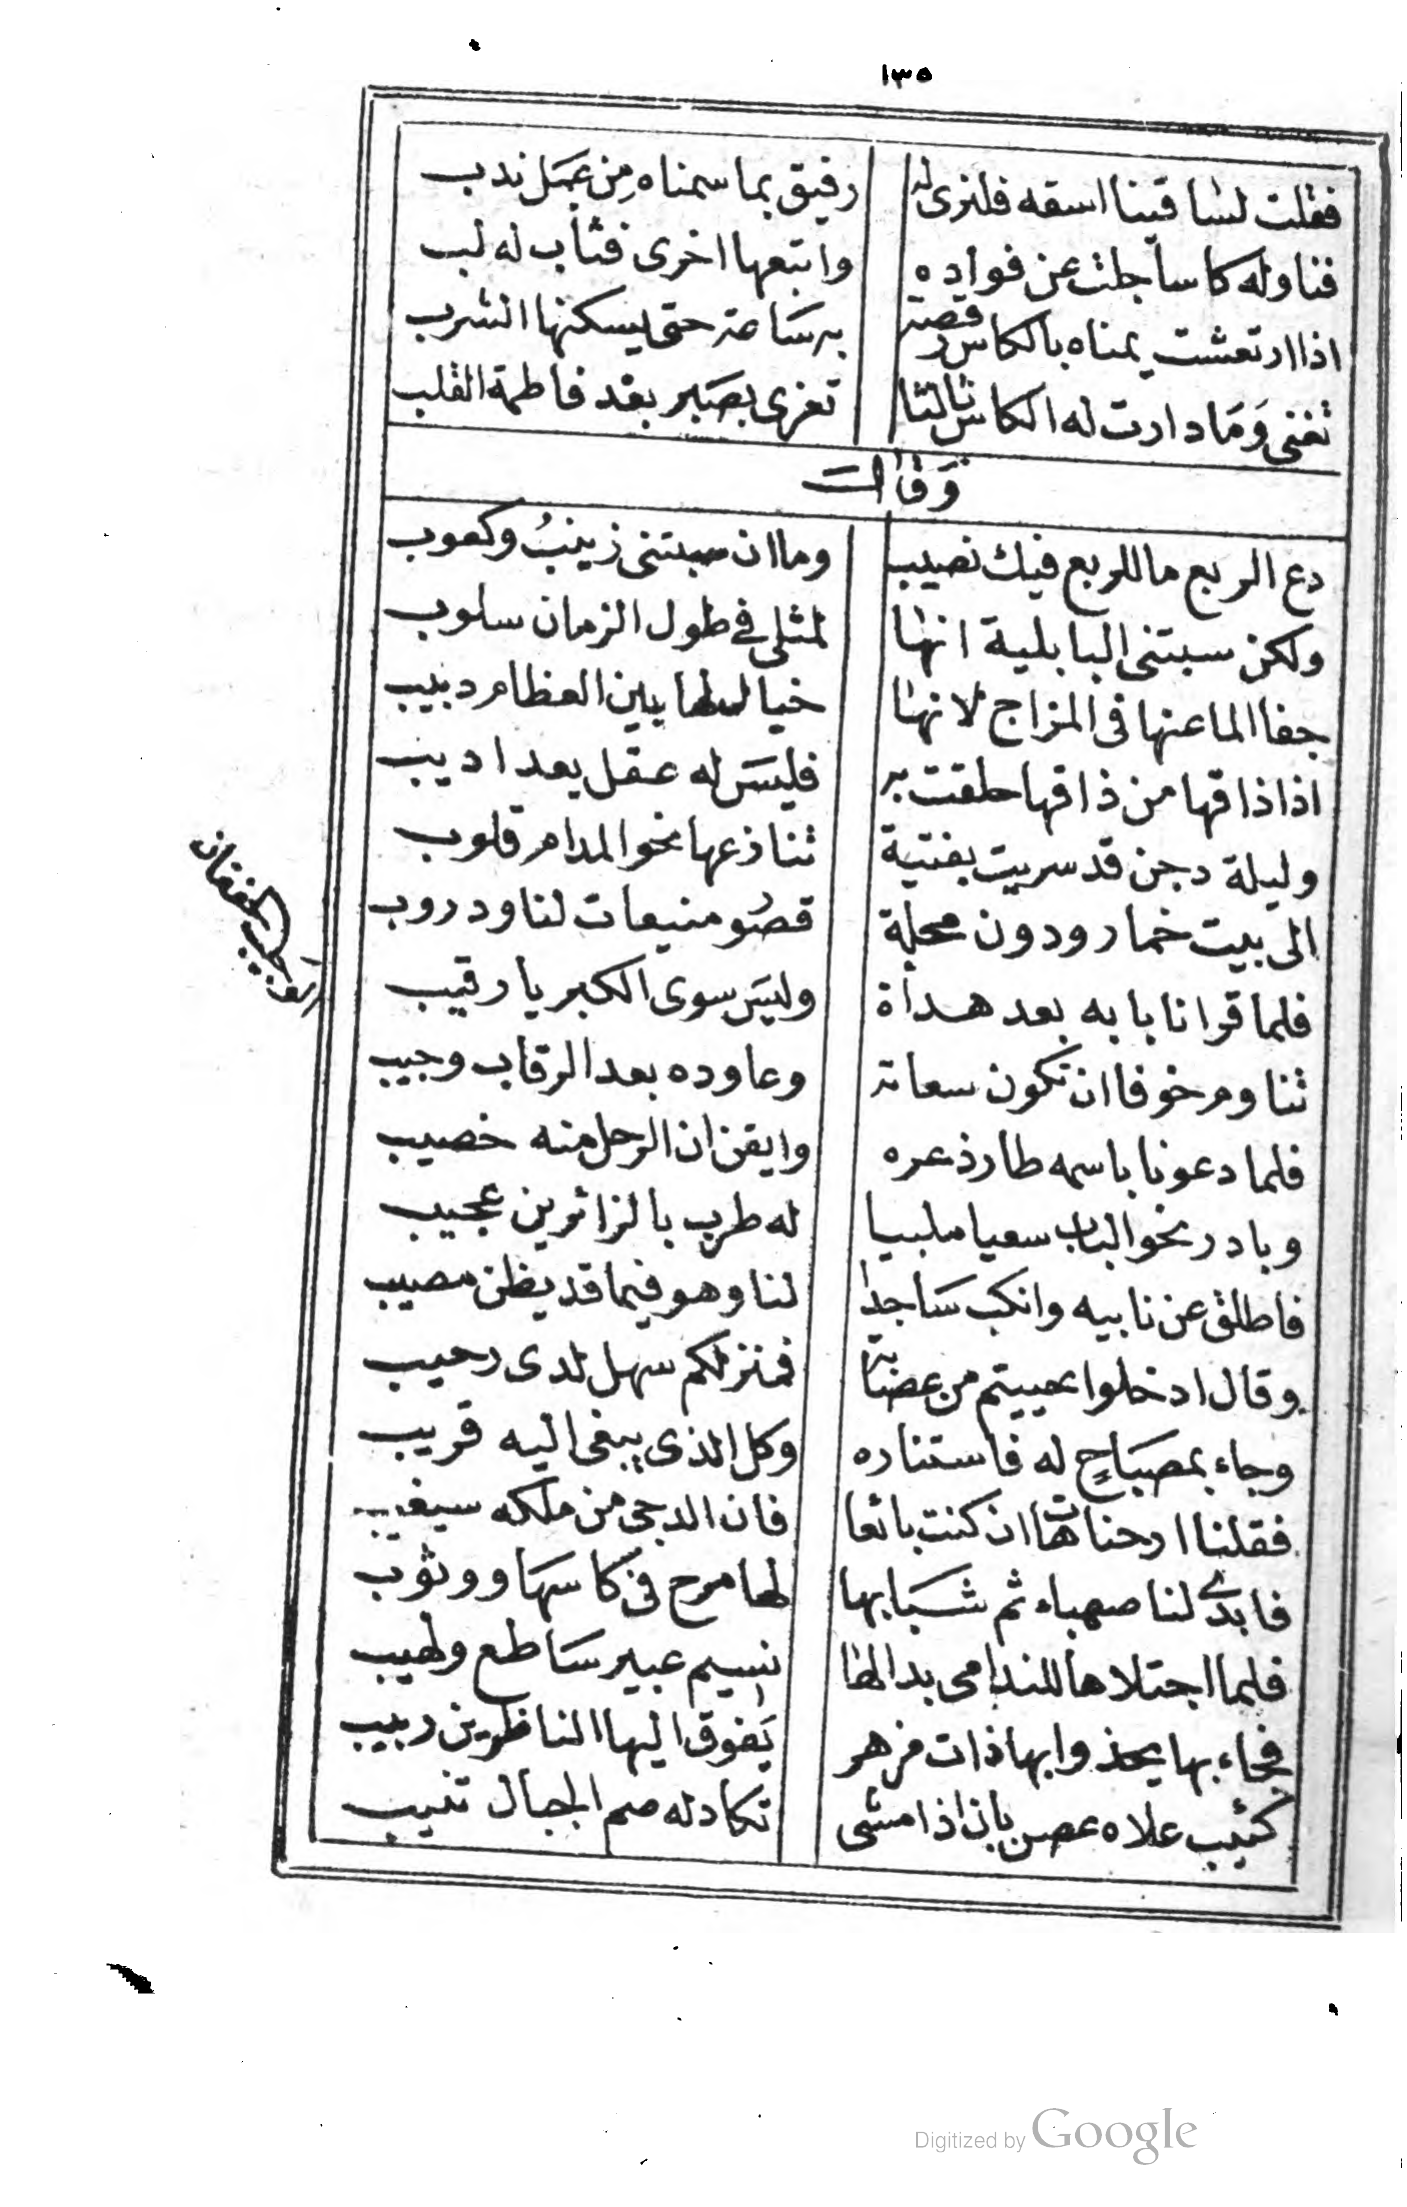 ١٣٥
فقلت لساقينا اسقه فلنرى له رفيق بما سمناه من عمل ندب
فناوله كاسا جلت عن فواده واتبعها اخرى فثاب له لب
اذا ارتعشت يمناه بالكاس رقصت به ساعة حتى يسكنها الشرب
تغنى وما دارت له الكاس ثالثا تعزى بصبر بعد فاطمة القلب
وقال
دع الربع ما للربع فيك نصيب وما ان سبتنى زينب وكعوب
ولكن سبتنى البابلية انها لمثلى فى طول الزمان سلوب
جفا الما عنها فى المزاج لانها خيال لها بين العظام دبيب
اذا ذاقها من ذاقها حلقت به فليس له عقل يعد اديب
وليلة دجن قد سريت بفتية تنازعها نحو المدام قلوب
الى بيت خمار ودون محلة قصور منيعات لنا ودروب
فلما قرانا بابه بعد هدأة وليس سوى الكبريا رقيب
تناوم خوفا ان تكون سعاية وعاوده بعد الرقاب وجيب
الوجيب الخفقان
فلما دعونا باسمه طار ذعره وايقن ان الرحل منه خصيب
وبادر نحو الباب سعيا ملبيا له طرب بالزائرين عجيب
فاطلق عن نابيه وانكب ساجدا لنا وهو فيما قد يظن مصيب
وقال ادخلوا حييتم من عصابة فمنزلكم سهل لدى رحيب
وجاء بمصباح له فاستناره وكل الذى يبغى اليه قريب
فقلنا ارحنا هات ان كنت بائعا فان الدجى من ملكه سيغيب
فابدى لنا صهباء ثم شبابها لها مرح فى كاسها ووثوب
فلما اجتلاها للندامى بدا لها نسيم عبير ساطع ولهيب
فجاء بها يحذوا بها ذات مزهر يفوق اليها الناظرين ربيب
كثيب علاه عصن بان اذا مشى تكاد له صم الجبال تنيب
Digitized by Google